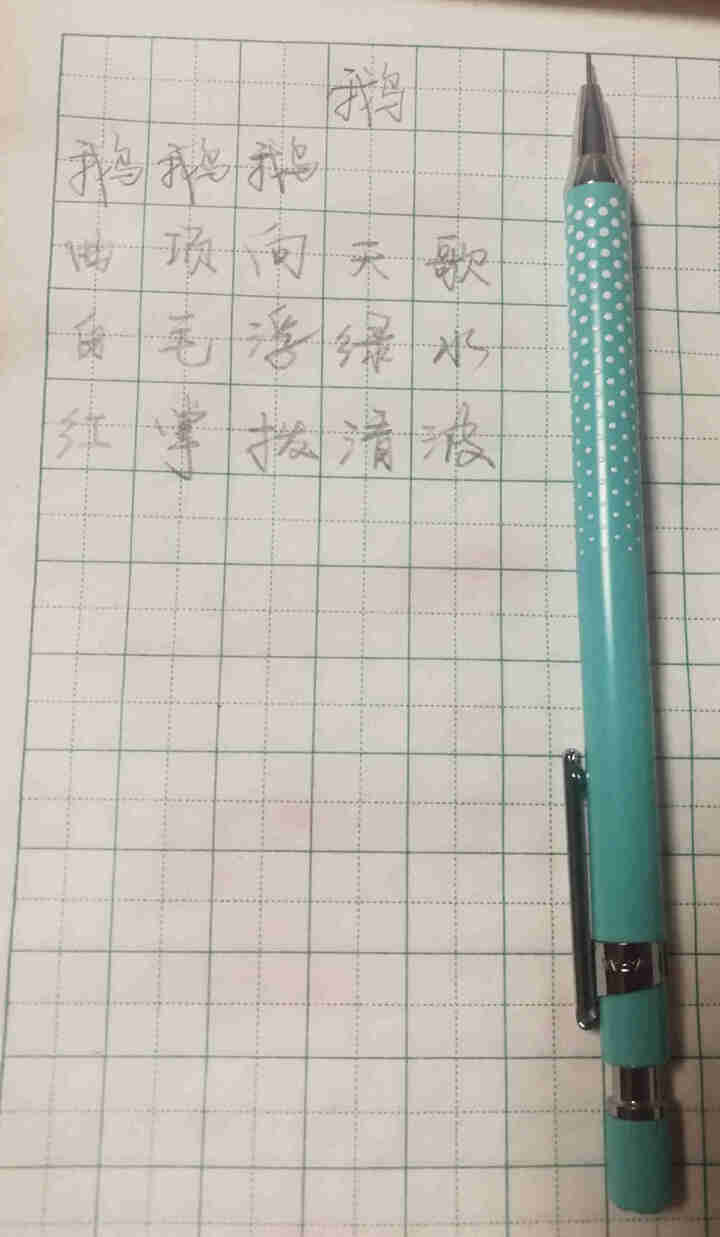 鹅
鹅鹅鹅
曲项向天歌
白毛浮绿水
红掌拨清波